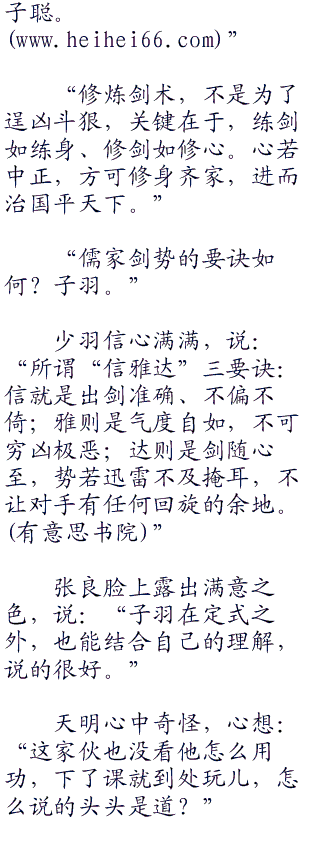 子聪。
(www.heihei66.com)”
“修炼剑术，不是为了
逞凶斗狠，关键在于，练剑
如练身、修剑如修心。心若
中正，方可修身齐家，进而
治国平天下。”
“儒家剑势的要诀如
何？子羽。”
少羽信心满满，说：
“所谓“信雅达”三要诀：
信就是出剑准确、不偏不
倚；雅则是气度自如，不可
穷凶极恶；达则是剑随心
至，势若迅雷不及掩耳，不
让对手有任何回旋的余地。
(有意思书院)”
张良脸上露出满意之
色，说：“子羽在定式之
外，也能结合自己的理解，
说的很好。”
天明心中奇怪，心想：
“这家伙也没看他怎么用
功，下了课就到处玩儿，怎
么说的头头是道？”